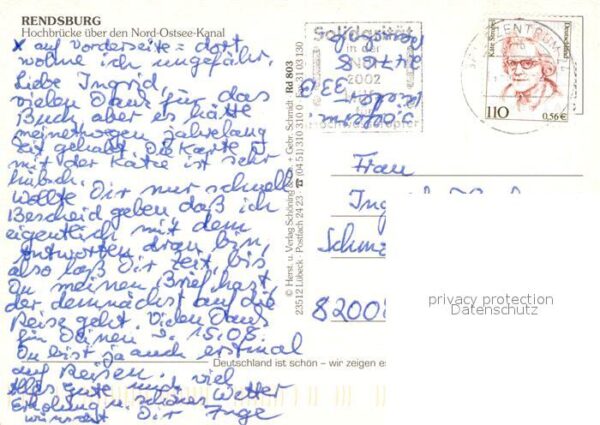 RENDSBURG
Hochbrücke über den Nord-Ostsee-Kanal
x auf Vorderseite = dort
wohne ich ungefähr.
Liebe Ingrid,
vielen Dank für das
Buch, aber es hätte
meinetwegen jahrelang
Zeit gehabt. Die Karte
mit der Katze ist sehr
hübsch.
Wollte Dir nur schnell
Bescheid geben daß ich
eigentlich mit dem
Antworten dran bin,
also laß Dir Zeit, bis
Du meinen Brief hast,
der demnächst auf die
Reise geht. Vielen Dank
für Deinen v. 15.08.
Du bist ja auch erstmal
auf Reisen.
Alles Gute und viel
Erholung u. schönes Wetter
wünscht Dir Inge
© Herst. u. Verlag Schöning & + Gebr. Schmidt Rd 803
23512 Lübeck · Postfach 24 23 · ☎ (04 51) 310 310 · 31 03 130
Deutschland ist schön – wir zeigen es
Solidarität
in der
2002
Hochwasseropfer
24768
ZENTRUM
Deutschland
110
0,56 €
Frau
Ing
Schm
8200
privacy protection
Datenschutz